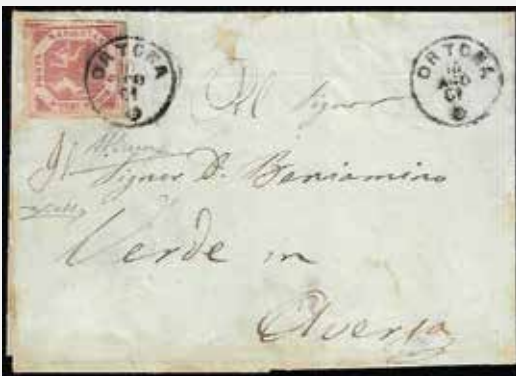 ORTONA
AGO
61
ORTONA
AGO
61
Al Signor
Signor D. Beniamino
Verde in
Aversa